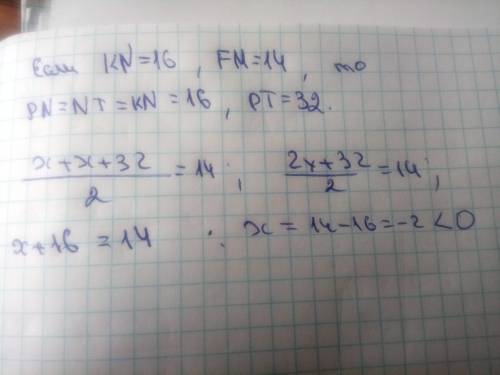 Если KN=16 , FM=14 , то
PN=NT=KN=16 , PT=32.
(x+x+32)/2 = 14 ; (2x+32)/2 = 14 ;
x+16 = 14 ; x = 14-16=-2<0